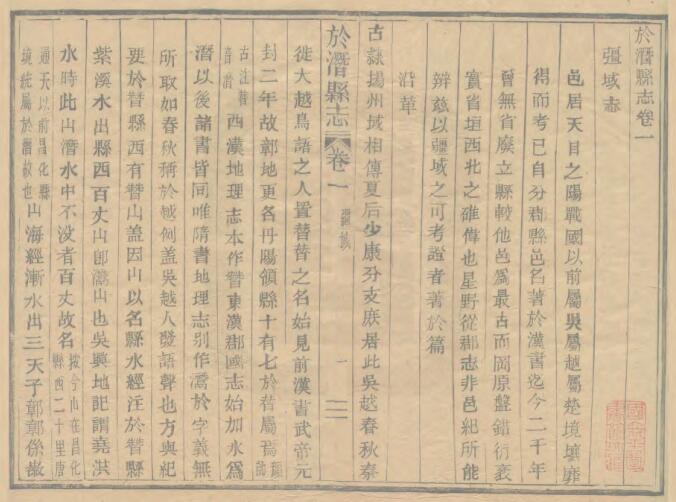 於潛縣志卷一
疆域志
邑居天目之陽戰國以前屬吳屬越屬楚境壤靡
得而考已自分郡縣邑名著於漢書迄今二千年
曾無省廢立縣較他邑爲最古而岡原盤錯衍袤
實省垣西北之雄偉也星野從郡志非邑紀所能
辨茲以疆域之可考證者著於篇
沿革
古隷揚州域相傳夏后少康分支庶居此吳越春秋秦
於潛縣志
卷一
疆域
一
徙大越鳥語之人置朁朁之名始見前漢書武帝元
封二年故鄣地更名丹陽領縣十有七於朁屬焉顔師
古注朁音潛西漢地理志本作朁東漢郡國志始加水爲
潛以後諸書皆同唯隋書地理志别作濳於字義無
所取如春秋稱於越何盖吳越人發語聲也方輿紀
要於朁縣西有朁山盖因山以名縣水經注於朁縣
紫溪水出縣西百丈山卽潛山也吳興地記謂堯洪
水時此山潛水中不没者百丈故名按今山在昌化縣西二十里唐
通天以前昌化縣境統屬於潛故也山海經漸水出三天子鄣鄣係故